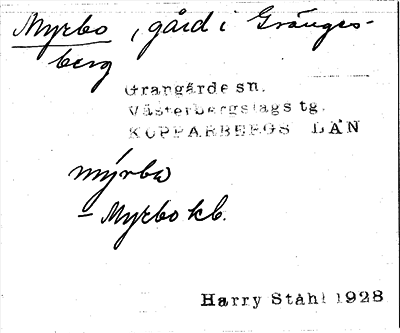 Myrbo, gård i Gränges-
berg
Grangärde sn.
Västerbergslags tg.
KOPPARBERGS LÄN
mýrbω
= Myrbo kb.
Harry Ståhl 1928